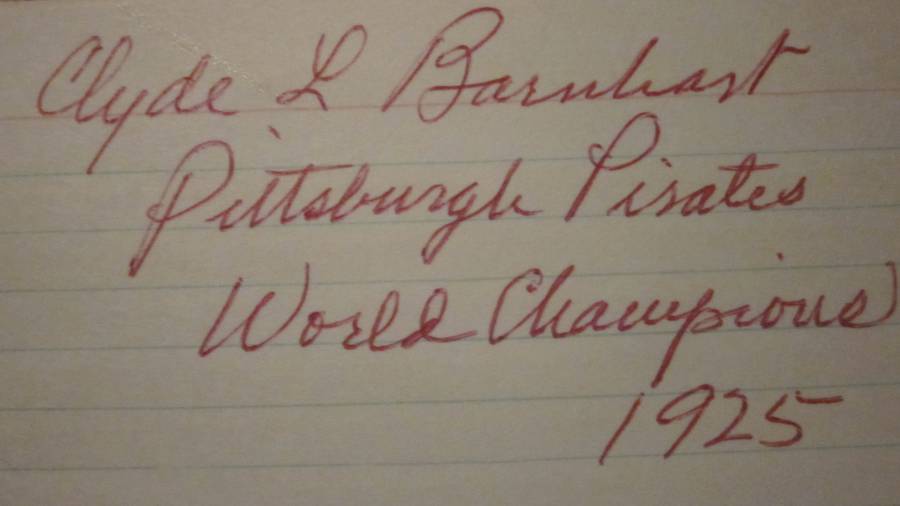 Clyde L Barnhart
Pittsburgh Pirates
World Champions
1925